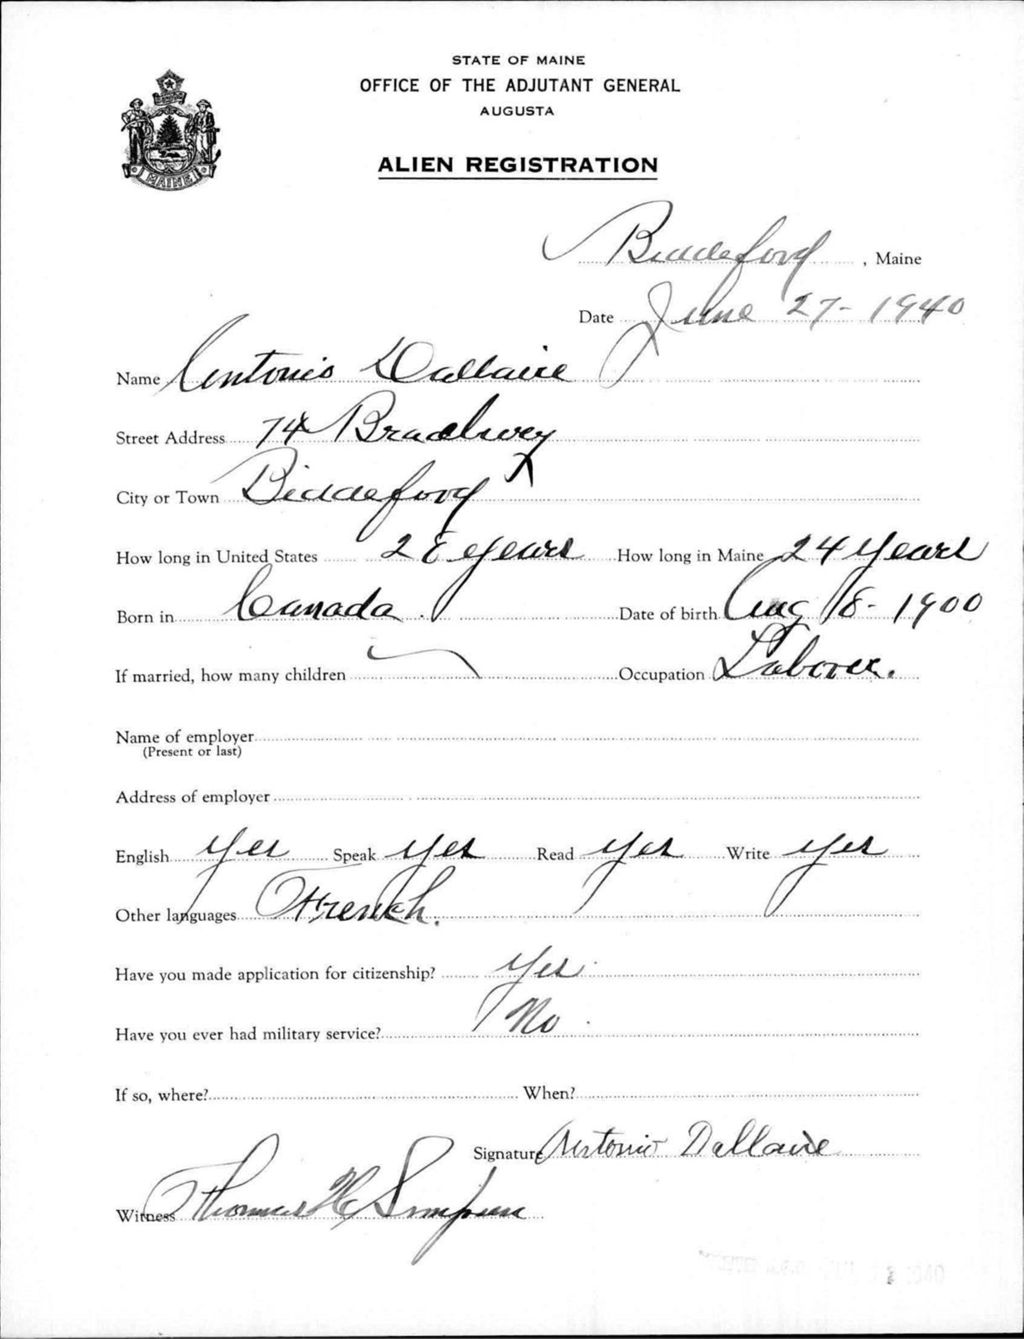 STATE OF MAINE
OFFICE OF THE ADJUTANT GENERAL
AUGUSTA
MAINE
ALIEN REGISTRATION
Biddeford, Maine
Date June 27- 1940
Name Antonio Dallaire
Street Address 74 Bradbury
City or Town Biddeford
How long in United States 28 years How long in Maine 24 years
Born in Canada. Date of birth Aug 18- 1900
If married, how many children Occupation Laborer.
Name of employer
(Present or last)
Address of employer
English Yes Speak Yes Read Yes Write Yes
Other languages French.
Have you made application for citizenship? Yes
Have you ever had military service? No
If so, where? When?
Signature Antonio Dallaire
Witness Thomas H Simpson
1940